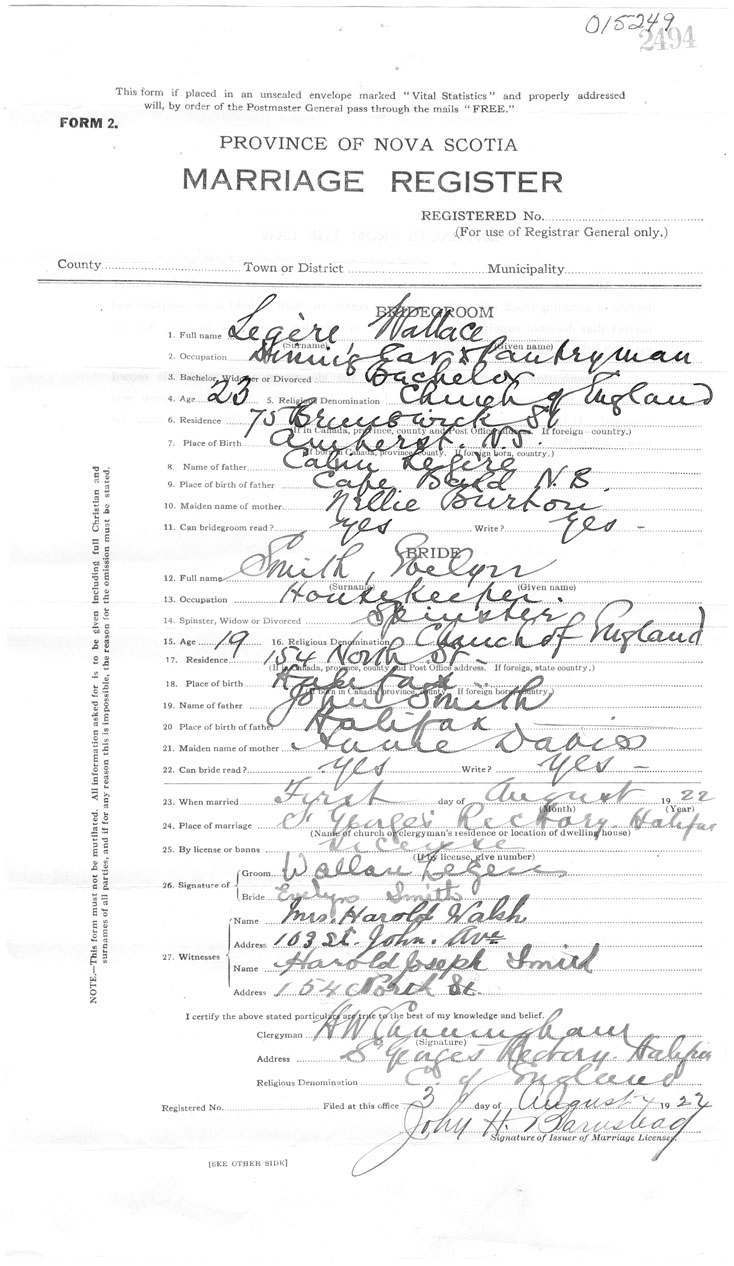 015249
2494
This form if placed in an unsealed envelope marked "Vital Statistics" and properly addressed
will, by order of the Postmaster General pass through the mails "FREE."
FORM 2.
PROVINCE OF NOVA SCOTIA
MARRIAGE REGISTER
REGISTERED No.
(For use of Registrar General only.)
County Town or District Municipality
BRIDEGROOM
1. Full name Legère Wallace
(Surname) (Given name)
2. Occupation Dinning Car & Pantryman
3. Bachelor, Widower or Divorced Bachelor
4. Age 23 5. Religious Denomination Church of England
6. Residence 75 Brunswick St
(If in Canada, province, county and Post Office address. If foreign - country.)
7. Place of Birth Amherst. N.S.
(If born in Canada, province, county. If foreign born, country.)
8. Name of father Calin Legère
9. Place of birth of father Cape Bald N.B.
10. Maiden name of mother Nellie Burton
11. Can bridegroom read? Yes Write? Yes -
BRIDE
12. Full name Smith, Evelyn
(Surname) (Given name)
13. Occupation Housekeeper.
14. Spinster, Widow or Divorced Spinster
15. Age 19 16. Religious Denomination Church of England
17. Residence 154 North St -
(If in Canada, province, county and Post Office address. If foreign, state country.)
18. Place of birth Halifax
(If born in Canada, province, county. If foreign born, country.)
19. Name of father John Smith
20. Place of birth of father Halifax
21. Maiden name of mother Annie Davis
22. Can bride read? Yes Write? Yes -
23. When married First day of August 1922
(Month) (Year)
24. Place of marriage St Georges Rectory. Halifax
(Name of church or clergyman's residence or location of dwelling house)
25. By license or banns License
(If by license, give number)
26. Signature of Groom Wallace Legere
Bride Evelyn Smith
27. Witnesses Name Mrs. Harold Walsh
Address 103 St. John. Ave
Name Harold Joseph Smith
Address 154 North St.
I certify the above stated particulars are true to the best of my knowledge and belief.
Clergyman H W Cunningham
(Signature)
Address St Georges Rectory. Halifax
Religious Denomination C. of England
Registered No. Filed at this office 3 day of August 1922
John H. Barnstead
Signature of Issuer of Marriage Licenses.
[SEE OTHER SIDE]
NOTE.—This form must not be mutilated. All information asked for is to be given including full Christian and
surnames of all parties, and if for any reason this is impossible, the reason for the omission must be stated.